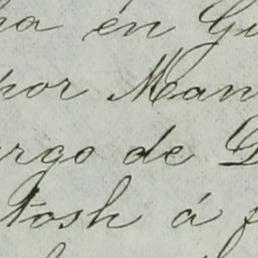 ha én Gu
por Man
argo de
tosh á f